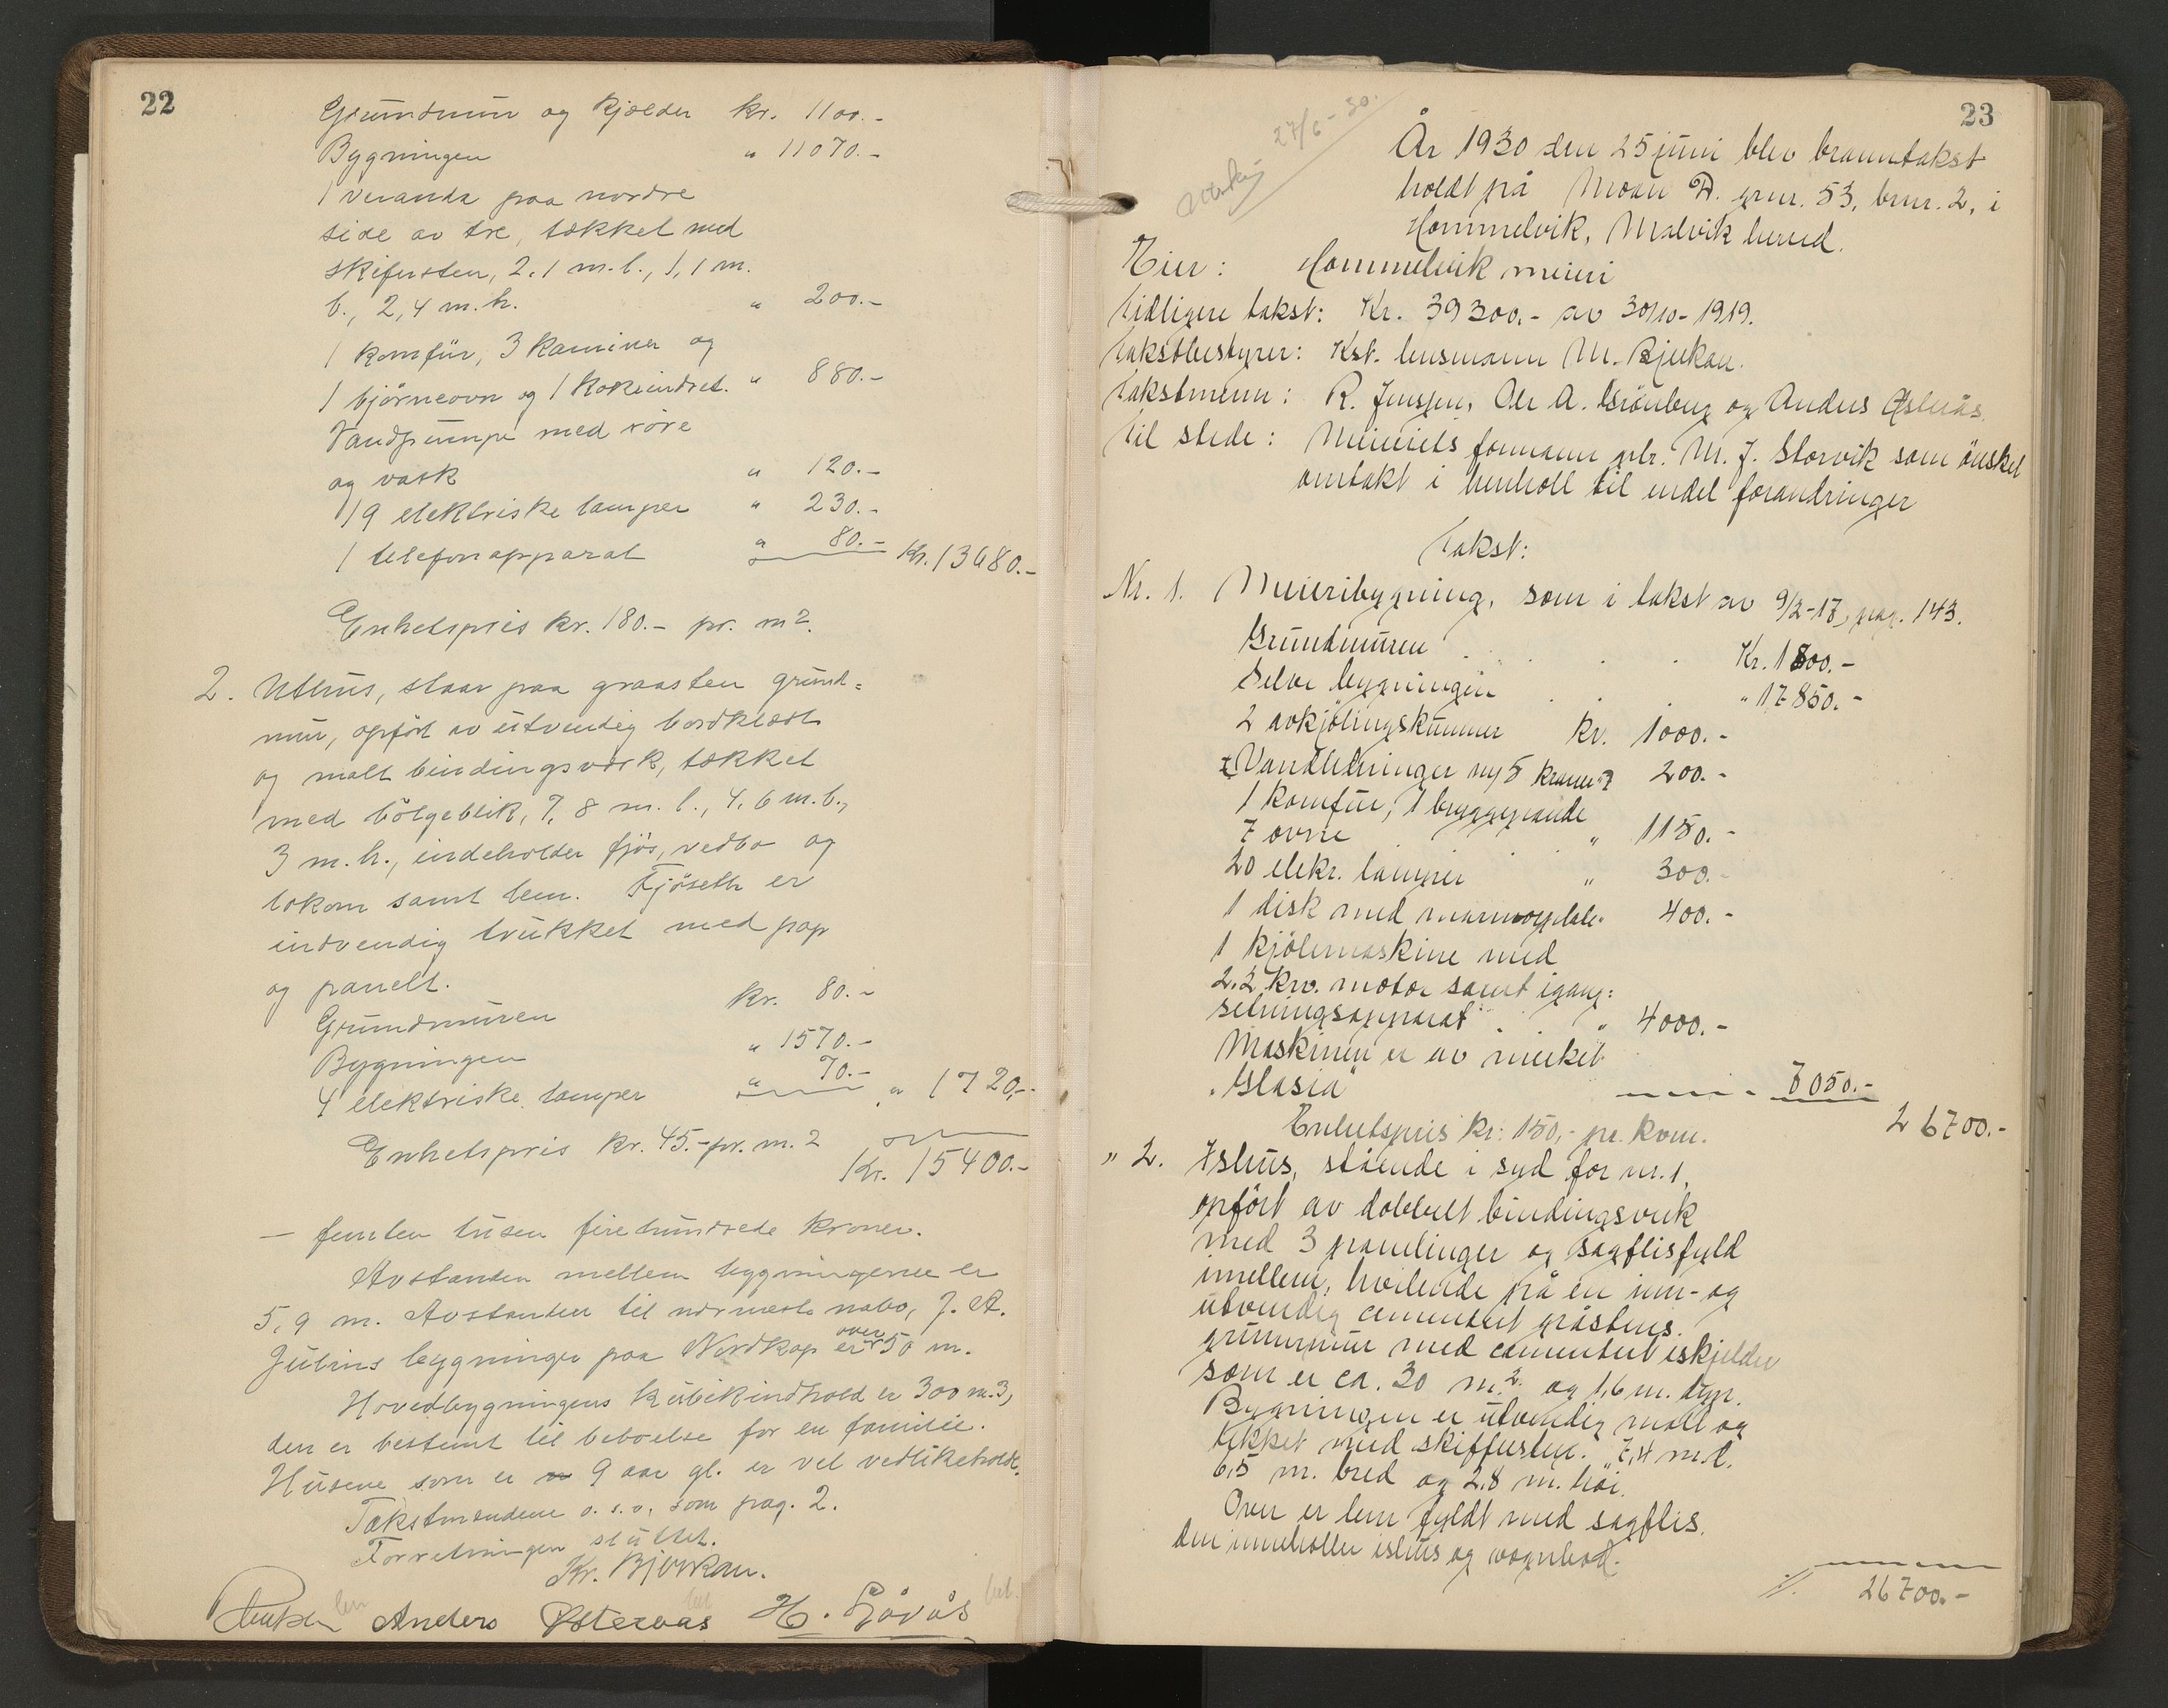 22
Grundmur og kjælder kr. 1100.-
Bygningen " 11070.-
1 veranda paa nordre
side av tre, tækket med
skifersten, 2,1 m. l., 1,1 m.
b., 2,4 m. h. " 200.-
1 komfür, 3 kaminer og
1 björneovn og 1 kokeindret. " 880.-
Vandpumpe med röre
og vask " 120.-
19 elektriske lamper " 230.-
1 telefonapparat " 80.- Kr. 13680.-
Enhetspris kr. 180.- pr. m2.
2. Uthus, staar paa graasten grund=
mur, opfört av utvendig bordklædt
og malt bindingsverk, tækket
med bölgeblik, 7,8 m. l., 4,6 m. b.,
3 m. h., indeholder fjös, vedbo og
lokom samt lem. Fjöseth er
indvendig trukket med pap
og panelt.
Grundmuren kr. 80.-
Bygningen " 1570.-
4 elektriske lamper " 70.- " 1720,-
Enhetspris kr. 45.- pr. m.2
Kr. 15400.-
— femten tusen firehundrede kroner.
Avstanden mellem bygningerne er
5,9 m. Avstanden til nærmeste nabo, J. A.
Julins bygninger paa Nordkap er over 50 m.
Hovedbygningens kubikindhold er 300 m.3,
den er bestemt til beboelse for en familie.
Husene som er 9 aar gl. er vel vedlikeholdt.
Takstmændene o. s. v. som pag. 2.
Forretningen sluttet.
Kr. Bjerkan.
Anders Østeraas H.
23
27/6-30.
År 1930 den 25 juni blev branntakst
holdt på Moan gnr. 53, bnr. 2, i
Hommelvik, Malvik herred.
Eier: Hommelvik meieri
Tidligere takst: Kr. 39300.- av 30/10-1919.
Takstbestyrer: Kst. lensmann M. Bjerkan.
Takstmenn: R. Jenssen, Ole A. Grönberg og Anders Østerås.
Til stede: Meieriets formann gbr. M. J. Storvik som önsket
omtakt i henholl til endel forandringer
Takst:
Nr. 1. Meieribygning, som i takst av 9/2-17, pag. 143.
Grundmuren . . . . Kr. 1800.-
Selve bygningen . . . " 17850.-
2 avkjölingskummer kr. 1000.-
Vandledninger og 5 kraner " 200.-
1 komfur, 1 bryggepande
7 ovne " 1150.-
20 elekr. lamper " 300.-
1 disk med marmorplate " 400.-
1 kjölemaskine med
2,2 kw. motor samt igang=
setningsapparat . . " 4000.-
Maskinen er av merket
"Glasia" 7050.-
Enhetspris kr. 150,- pr. kvm. 26700.-
" 2. Ishus, stående i syd for nr. 1,
opfört av dobbelt bindingsverk
med 3 panelinger og sagflisfyld
imellem, hvilende på en inn- og
utvendig cementert gråstens.
grunnmur med cementert iskjelder
som er ca. 30 m.2. og 1,6 m. dyp.
Bygningen er utvendig malt og
tekket med skiffersten. 7,4 m. l.
6,5 m. bred og 2,8 m. høi.
Over er lem fyldt med sagflis.
Den inneholler ishus og vognbod.
26700.-